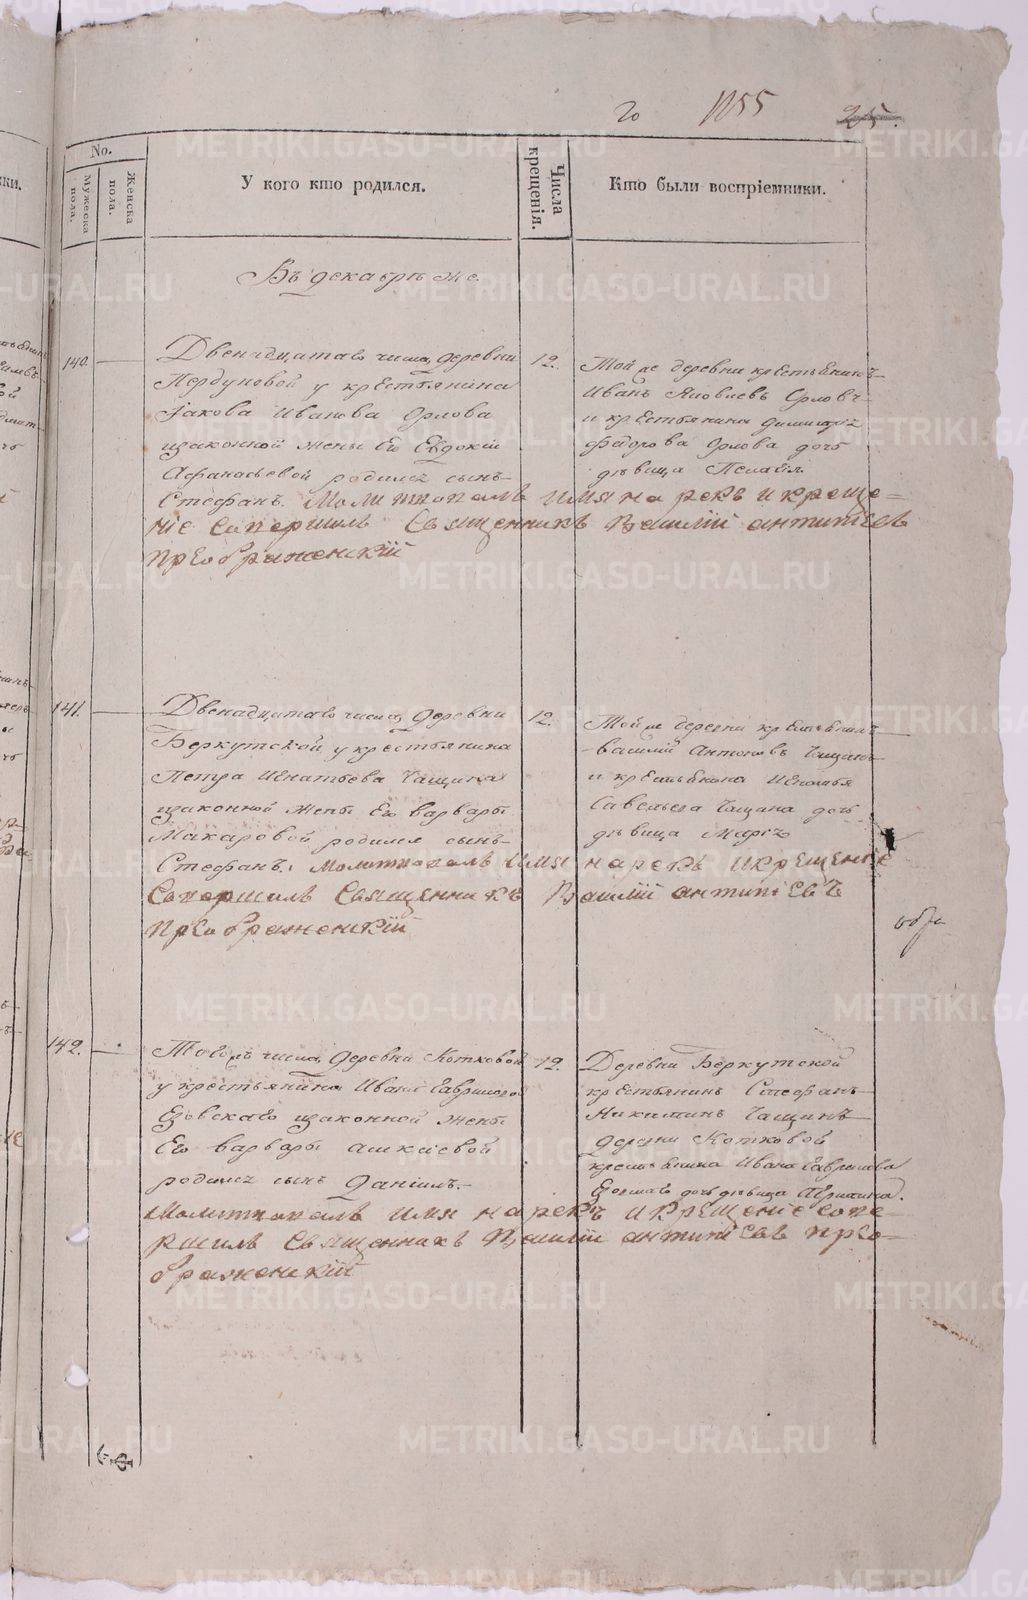 20 1055 25.
No.
Мужеска пола.
Женска пола.
У кого кто родился.
Числа крещенія.
Кто были воспріемники.
Въ декабрѣ же.
140. Двенадцатаго числа деревни
Пердуновой у крестьянина
Іакова Иванова Орлова
изаконной жены Его Евдокіи
Афанасьевой родился сынъ
Стефанъ. Молитвовалъ имя нарекъ и креще-
ніе совершилъ Священникъ Василій Антипіевъ
Преображенскій
12.
Той же деревни крестьянинъ
Иванъ Яковлевъ Орловъ
и крестьянина Димитрія
Федорова Орлова дочь
дѣвица Пелагія
141. Двенадцатаго числа деревни
Беркутской у крестьянина
Петра Игнатьева Чащина
изаконной жены Его Варвары
Макаровой родился сынъ
Стефанъ. Молитвовалъ имя нарекъ и крещеніе
Совершилъ Священникъ Василій Антипіевъ
Преображенскій
12.
Той же деревни крестьянинъ
Василій Антоновъ Чащинъ
и крестьянина Игнатья
Савельева Чащина дочь
дѣвица
142. Того жъ числа деревни Котковой
у крестьянина Ивана Гаврилова
Езовскаго изаконной жены
Его Варвары Алексіевой
родился сынъ Даніилъ.
Молитвовалъ имя нарекъ и крещеніе сове-
ршилъ Священникъ Василій Антипіевъ Прео-
браженскій
12.
Деревни Беркутской
крестьянинъ Стефанъ
Никитинъ Чащинъ
деревни Котковой
крестьянина Ивана Гаврилова
Езовскаго дочь дѣвица
METRIKI.GASO-URAL.RU